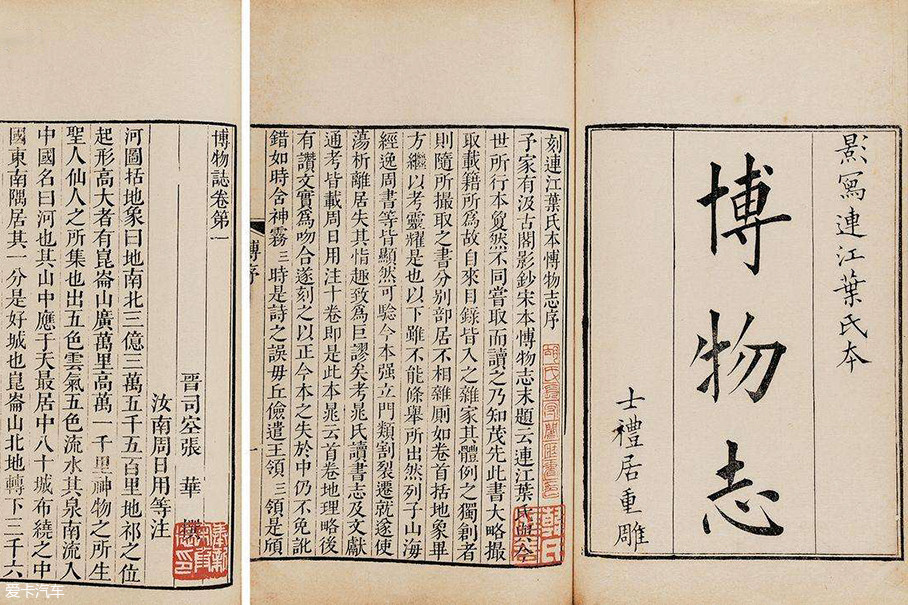 影寫連江葉氏本
博物志
士禮居重雕
刻連江葉氏本博物志序
予家有汲古閣影鈔宋本博物志末題云連江葉氏與今
世所行本夐然不同嘗取而讀之乃知茂先此書大略撮
取載籍所為故自來目錄皆入之雜家其體例之獨創者
則隨所撮取之書分別部居不相雜厠如卷首括地象畢
方繼以考靈耀是也以下雖不能條舉所出然列子山海
經逸周書等皆顯然可驗今本强立門類割裂遷就遂使
蕩析離居失其指趣致為巨謬矣考晁氏讀書志及文獻
通考皆載周日用注十卷即是此本晁云首卷地理略後
有讚文實為吻合遂刻之以正今本之失於中仍不免訛
錯如時含神霧三時是詩之誤毋丘儉遣王領三領是頎
博序
一
博物誌卷第一
晋司空張華撰
汝南周日用等注
河圖括地象曰地南北三億三萬五千五百里地祁之位
起形高大者有崑崙山廣萬里高萬一千里神物之所生
聖人仙人之所集也出五色雲氣五色流水其泉南流入
中國名曰河也其山中應于天最居中八十城布繞之中
國東南隅居其一分是好城也崑崙山北地轉下三千六
爱卡汽车